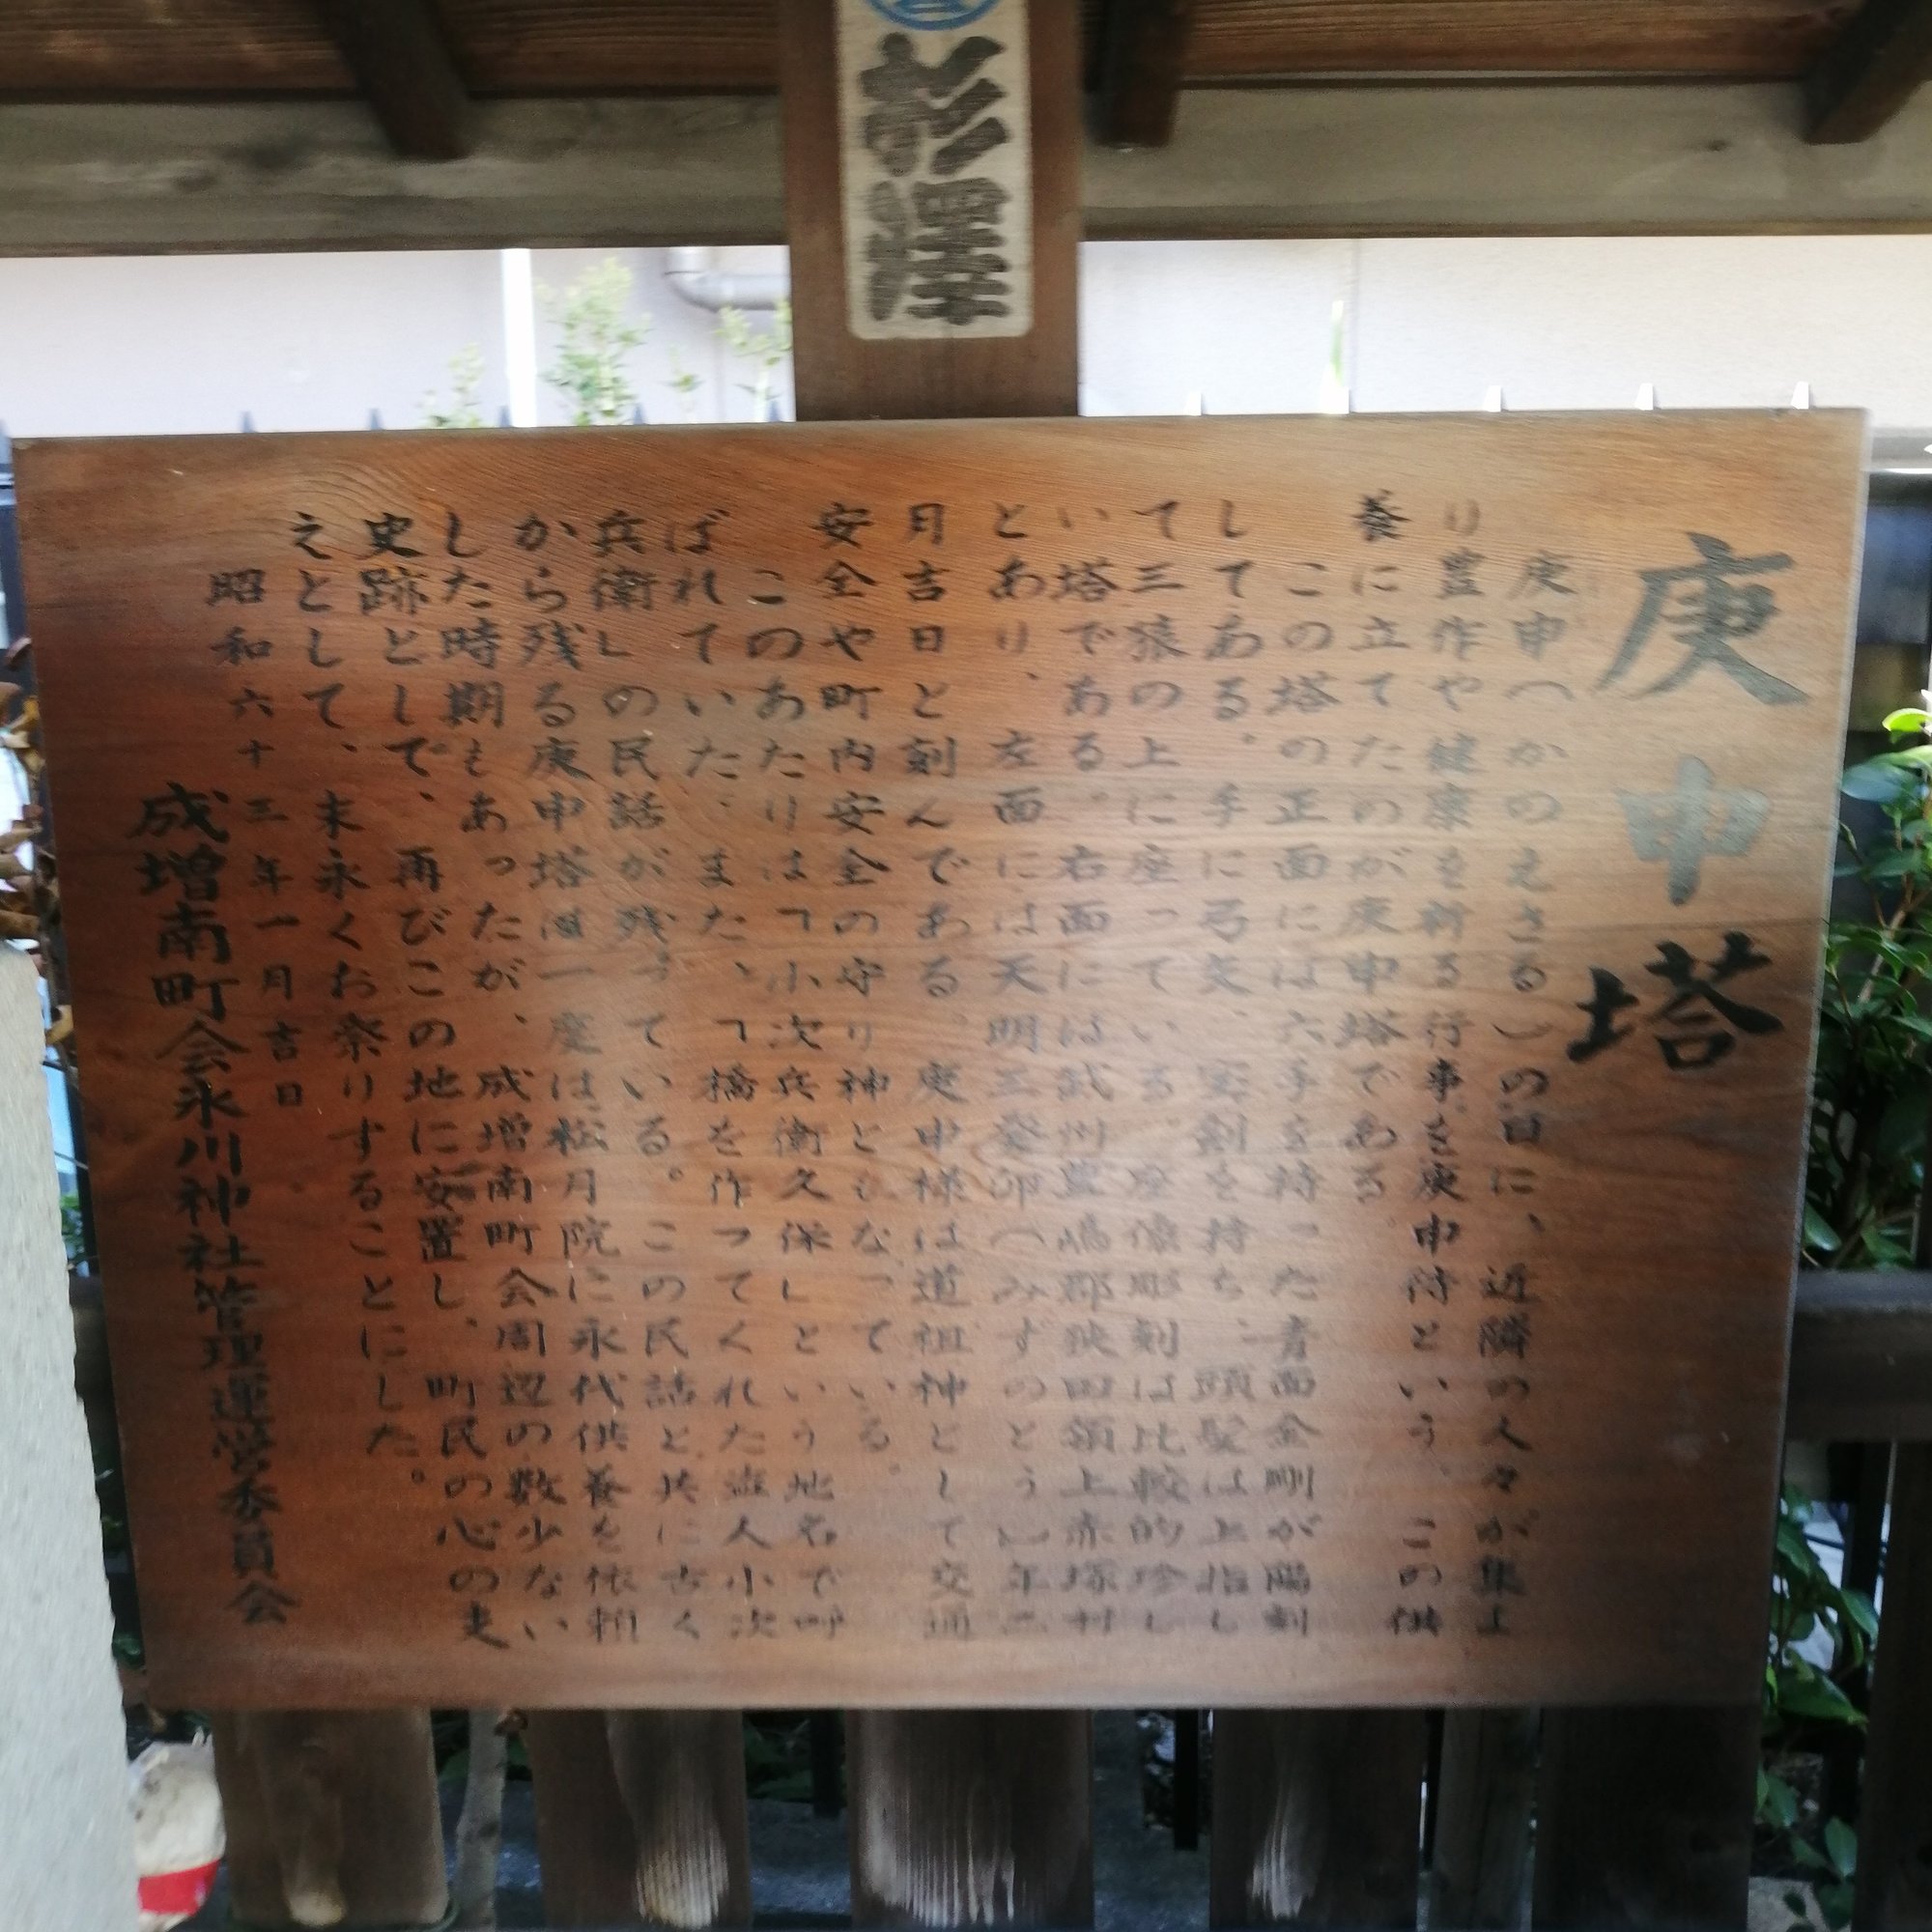 杉澤
庚申塔
庚申(かのえさる)の日に、近隣の人々が集ま
り豊作や健康を祈る行事を庚申待という。この供
養に立てたのが庚申塔である。
この塔の正面には六手を持った青面金剛が陽刻
してある。手に弓矢、宝剣を持ち、頭髪は上指し
て三猿の上に座っている。座像彫刻は比較的珍し
い塔である。右面には武州豊嶋郡狭田領上赤塚村
とあり、左面には天明三癸卯(みずのとう)年二
月吉日と刻んである。庚申様は道祖神として交通
安全や町内安全の守り神ともなっている。
このあたりは「小次兵衛久保」という地名で呼
ばれていた。また、「橋を作ってくれた盗人小次
兵衛」の民話が残っている。この民話と共に古く
から残る庚申塔は一度は松月院に永代供養を依頼
した時期もあったが、成増南町会周辺の数少ない
史跡として、再びこの地に安置し、町民の心の支
えとして、末永くお祭りすることにした。
昭和六十三年一月吉日
成増南町会氷川神社管理運営委員会